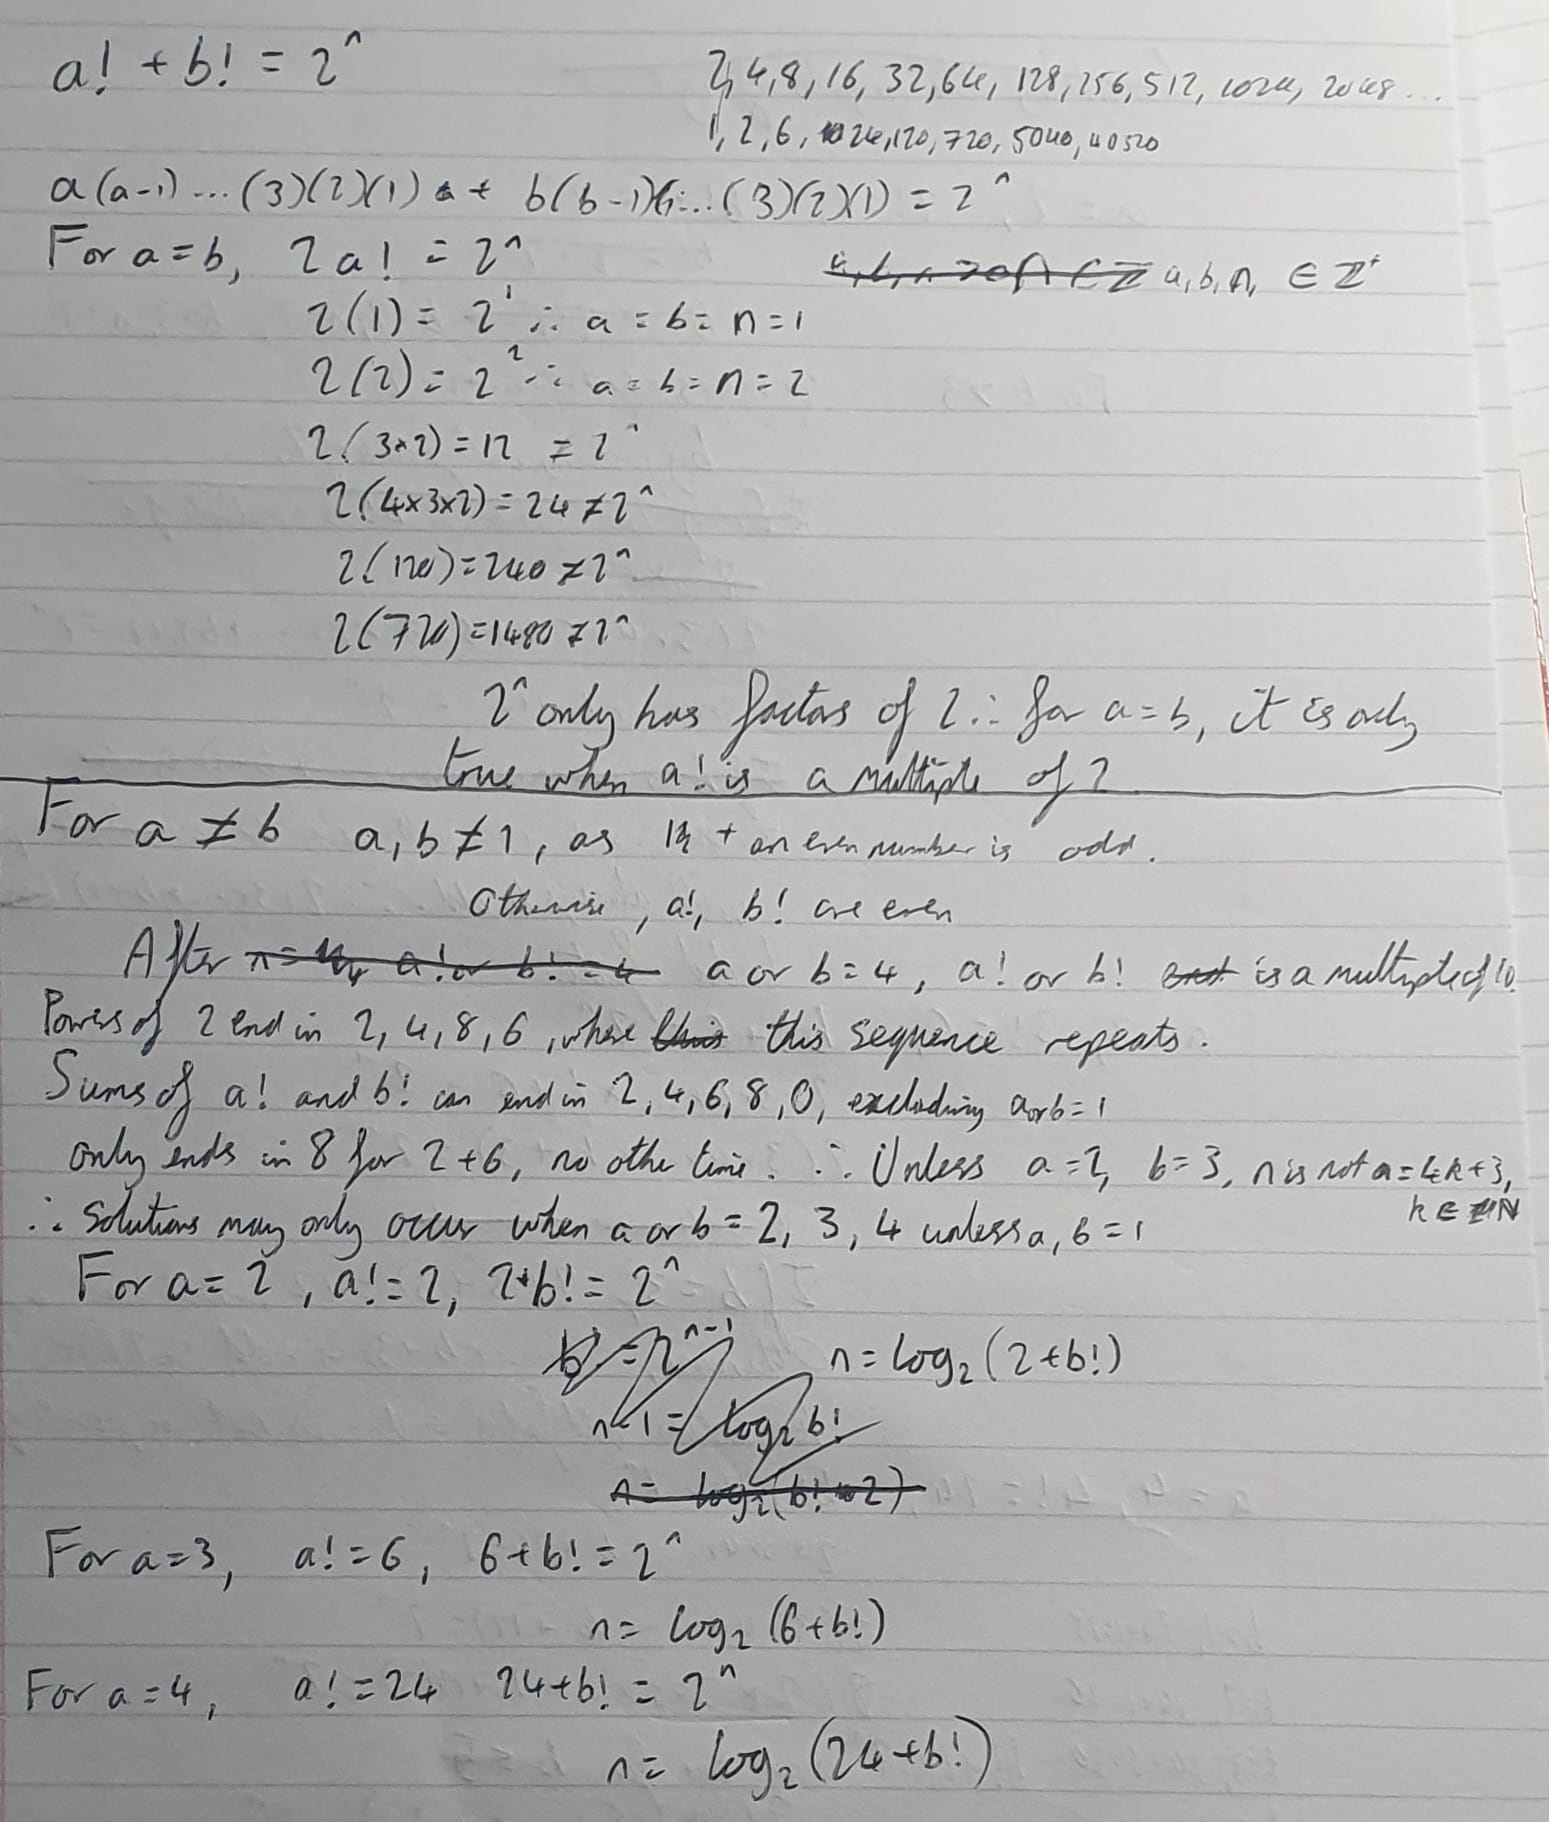 a! + b! = 2^n
2, 4, 8, 16, 32, 64, 128, 256, 512, 1024, 2048 ...
1, 2, 6, 24, 120, 720, 5040, 40320
a(a-1) ... (3)(2)(1) + b(b-1) ... (3)(2)(1) = 2^n
For a = b, 2a! = 2^n
a, b, n, ∈ ℤ⁺
2(1) = 2^1 ∴ a = b = n = 1
2(2) = 2^2 ∴ a = b = n = 2
2(3×2) = 12 ≠ 2^n
2(4×3×2) = 24 ≠ 2^n
2(120) = 240 ≠ 2^n
2(720) = 1480 ≠ 2^n
2^n only has factors of 2 ∴ for a = b, it is only
true when a! is a multiple of 2
For a ≠ b a, b ≠ 1, as 1 + an even number is odd.
Otherwise, a!, b! are even
After a or b = 4, a! or b! is a multiple of 10.
Powers of 2 end in 2, 4, 8, 6, where this sequence repeats.
Sums of a! and b! can end in 2, 4, 6, 8, 0, excluding a or b = 1
only ends in 8 for 2+6, no othe time. ∴ Unless a = 2, b = 3, n is not n = 4k+3,
k ∈ ℕ
∴ Solutions may only occur when a or b = 2, 3, 4 unless a, b = 1
For a = 2, a! = 2, 2+b! = 2^n
n = log₂(2+b!)
n-1 = log₂ b!
For a = 3, a! = 6, 6+b! = 2^n
n = log₂(6+b!)
For a = 4, a! = 24 24+b! = 2^n
n = log₂(24+b!)